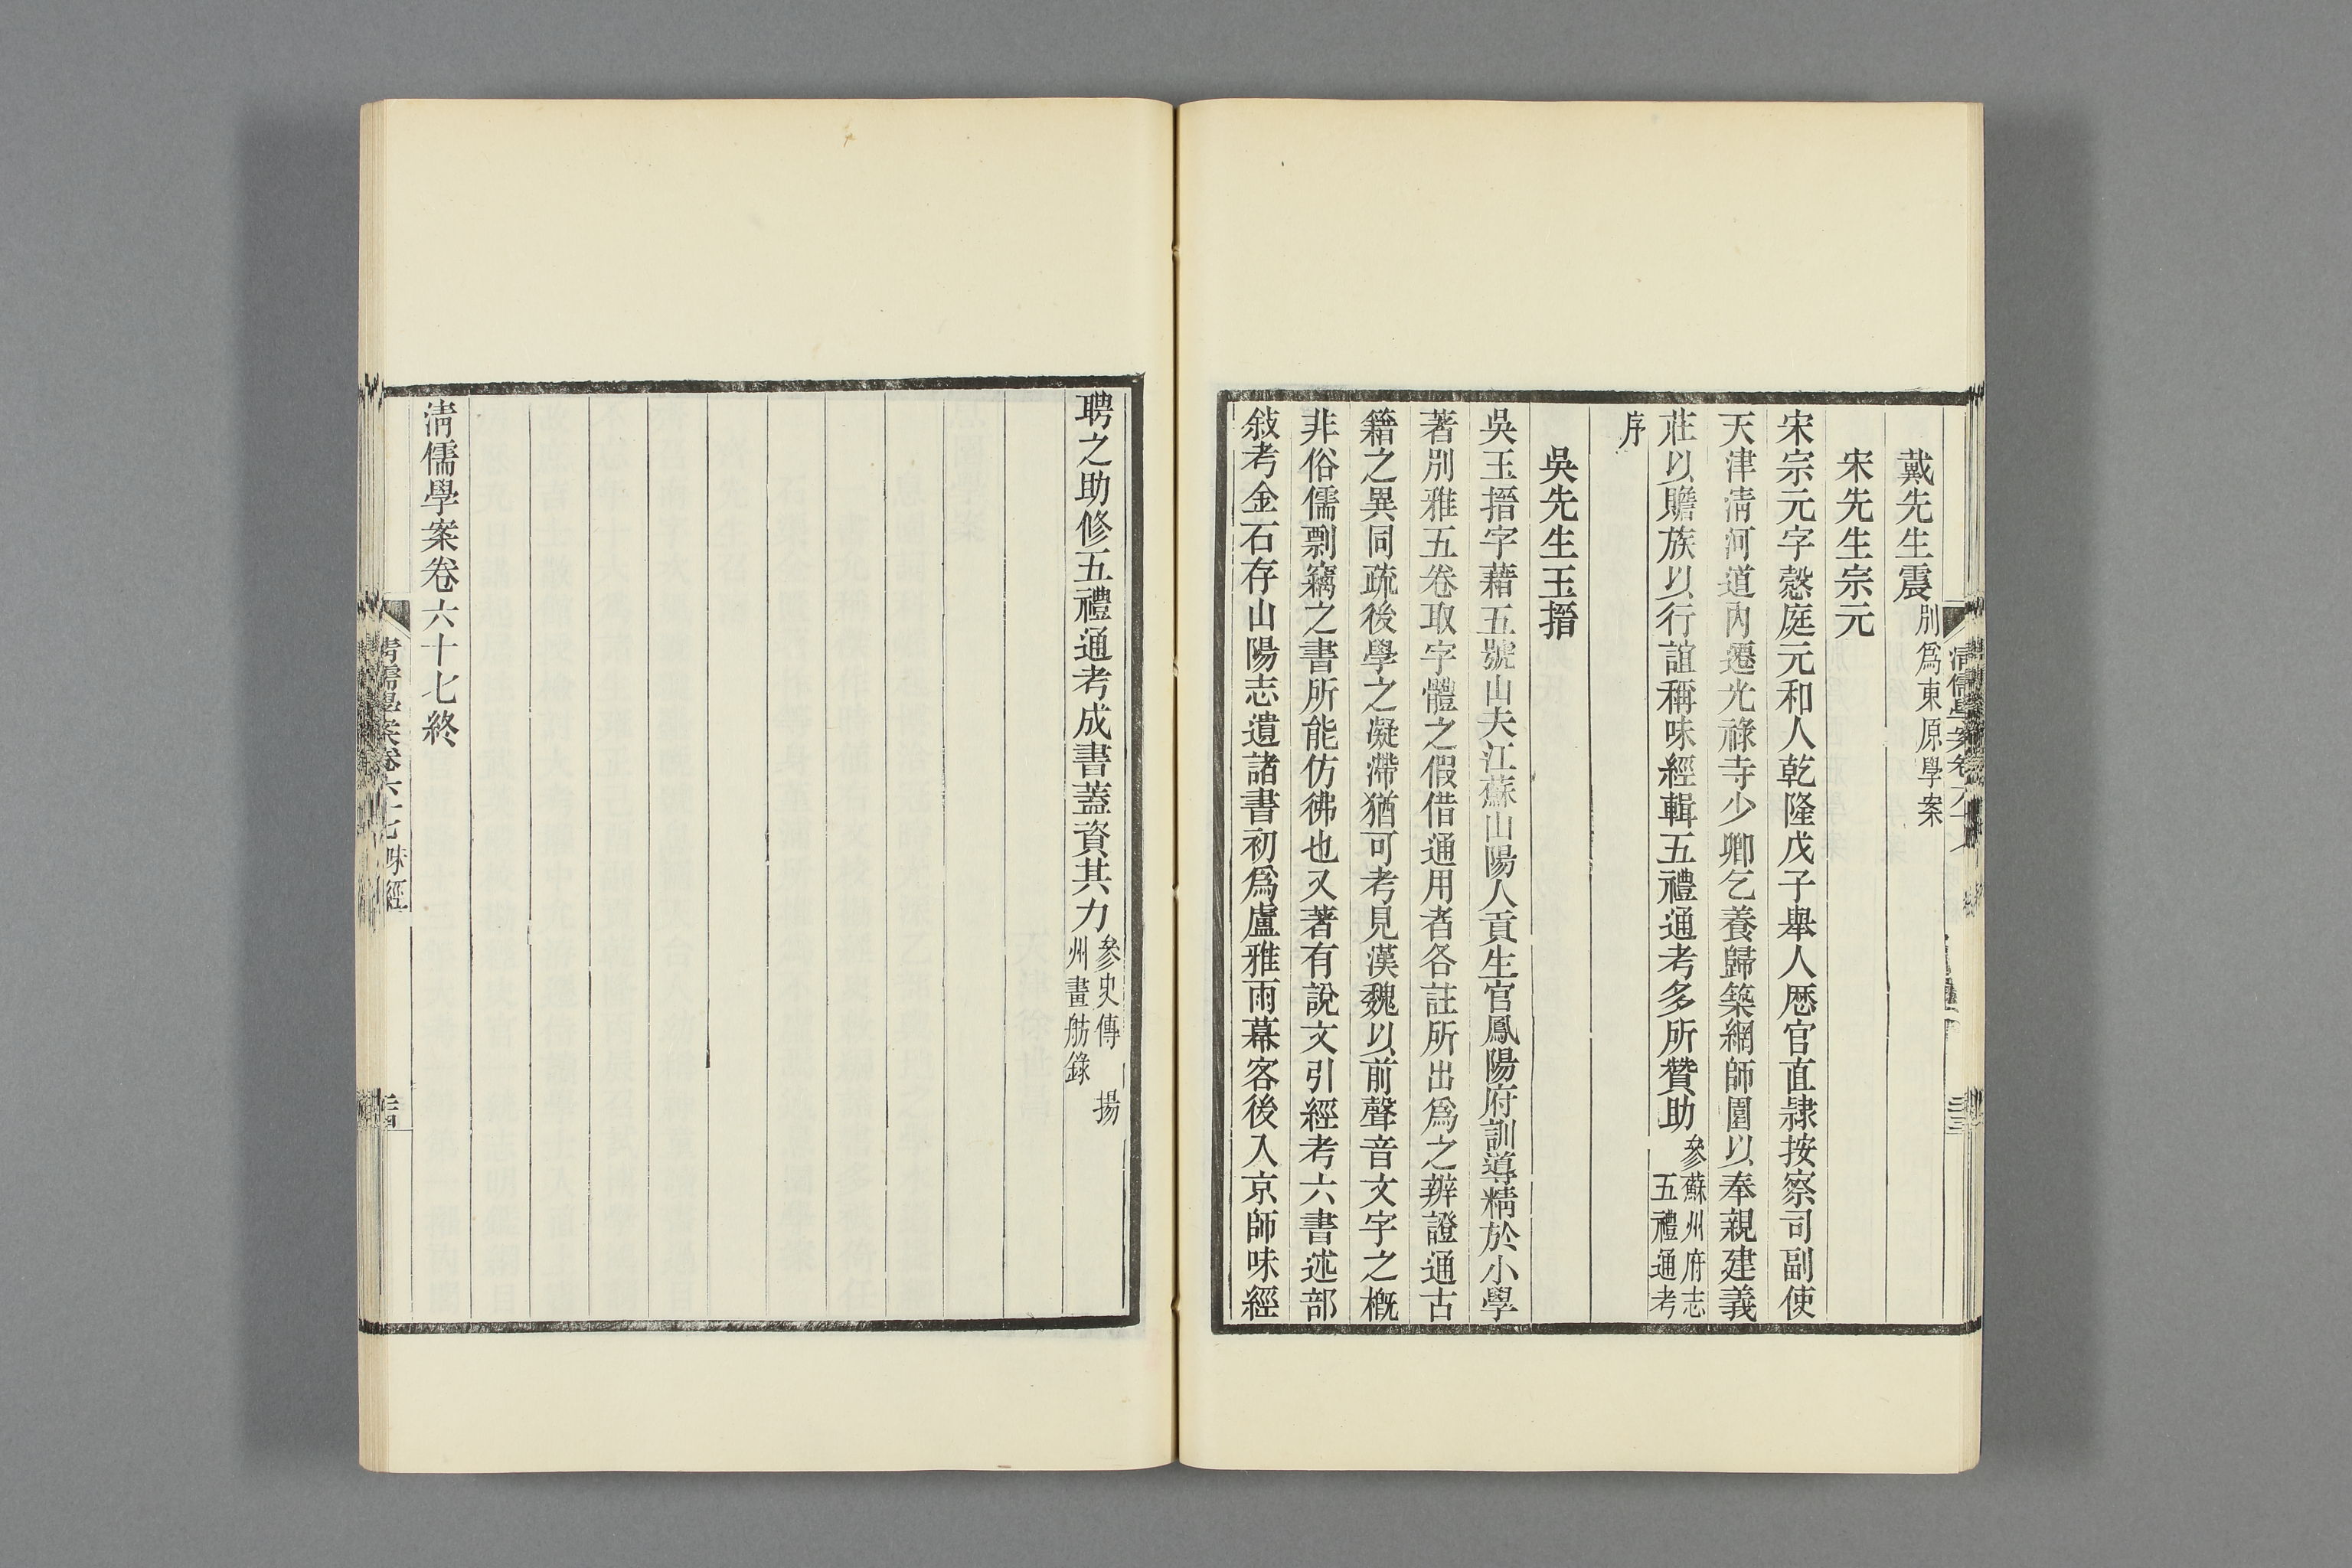 戴先生震別爲東原學案
宋先生宗元
宋宗元字愨庭元和人乾隆戊子舉人歷官直隸按察司副使
天津清河道內遷光祿寺少卿乞養歸築網師園以奉親建義
莊以贍族以行誼稱味經輯五禮通考多所贊助參蘇州府志五禮通考
序
吳先生玉搢
吳玉搢字藉五號山夫江蘇山陽人貢生官鳳陽府訓導精於小學
著別雅五卷取字體之假借通用者各註所出爲之辨證通古
籍之異同疏後學之凝滯猶可考見漢魏以前聲音文字之槪
非俗儒剽竊之書所能仿彿也又著有說文引經考六書述部
敍考金石存山陽志遺諸書初爲盧雅雨幕客後入京師味經
聘之助修五禮通考成書蓋資其力參史傳 揚州畫舫錄
清儒學案卷六十七終
清儒學案卷六十七 味經